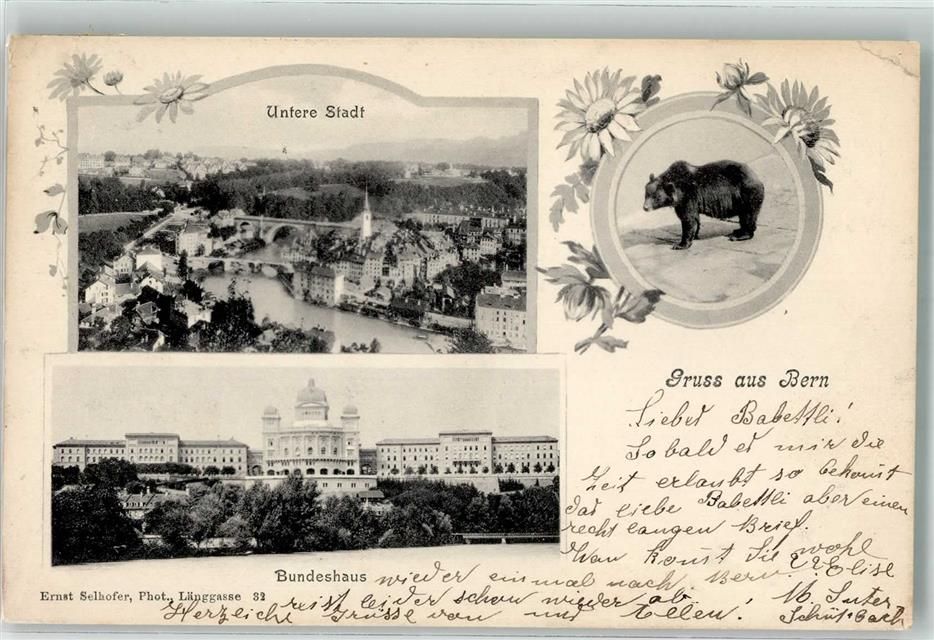 Untere Stadt
Gruss aus Bern
Liebes Babettli!
Sobald es mir die
Zeit erlaubt so bekomt
das liebe Babettli aber einen
recht langen Brief.
Wan komt Sie wohl
wieder einmal nach Bern.
Elise
reist leider schon wieder ab.
M. Suter
Herzliche Grüsse von und Allen!
Bundeshaus
Ernst Selhofer, Phot., Länggasse 32